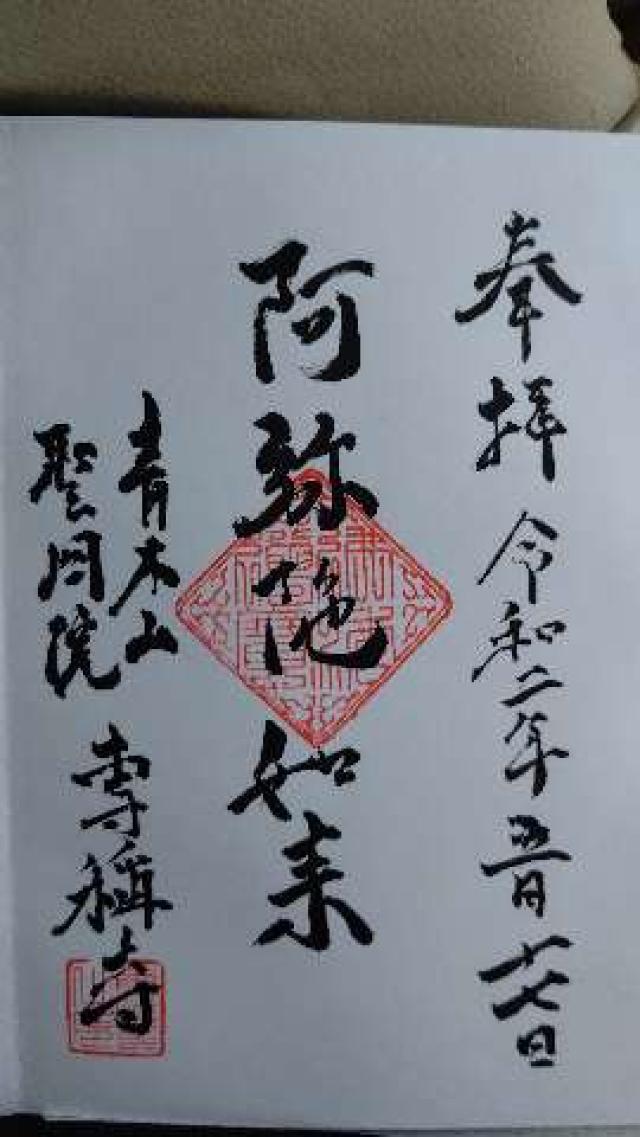 奉拝 令和二年五月十七日
阿弥陀如来
青木山
聖 院
專稱寺